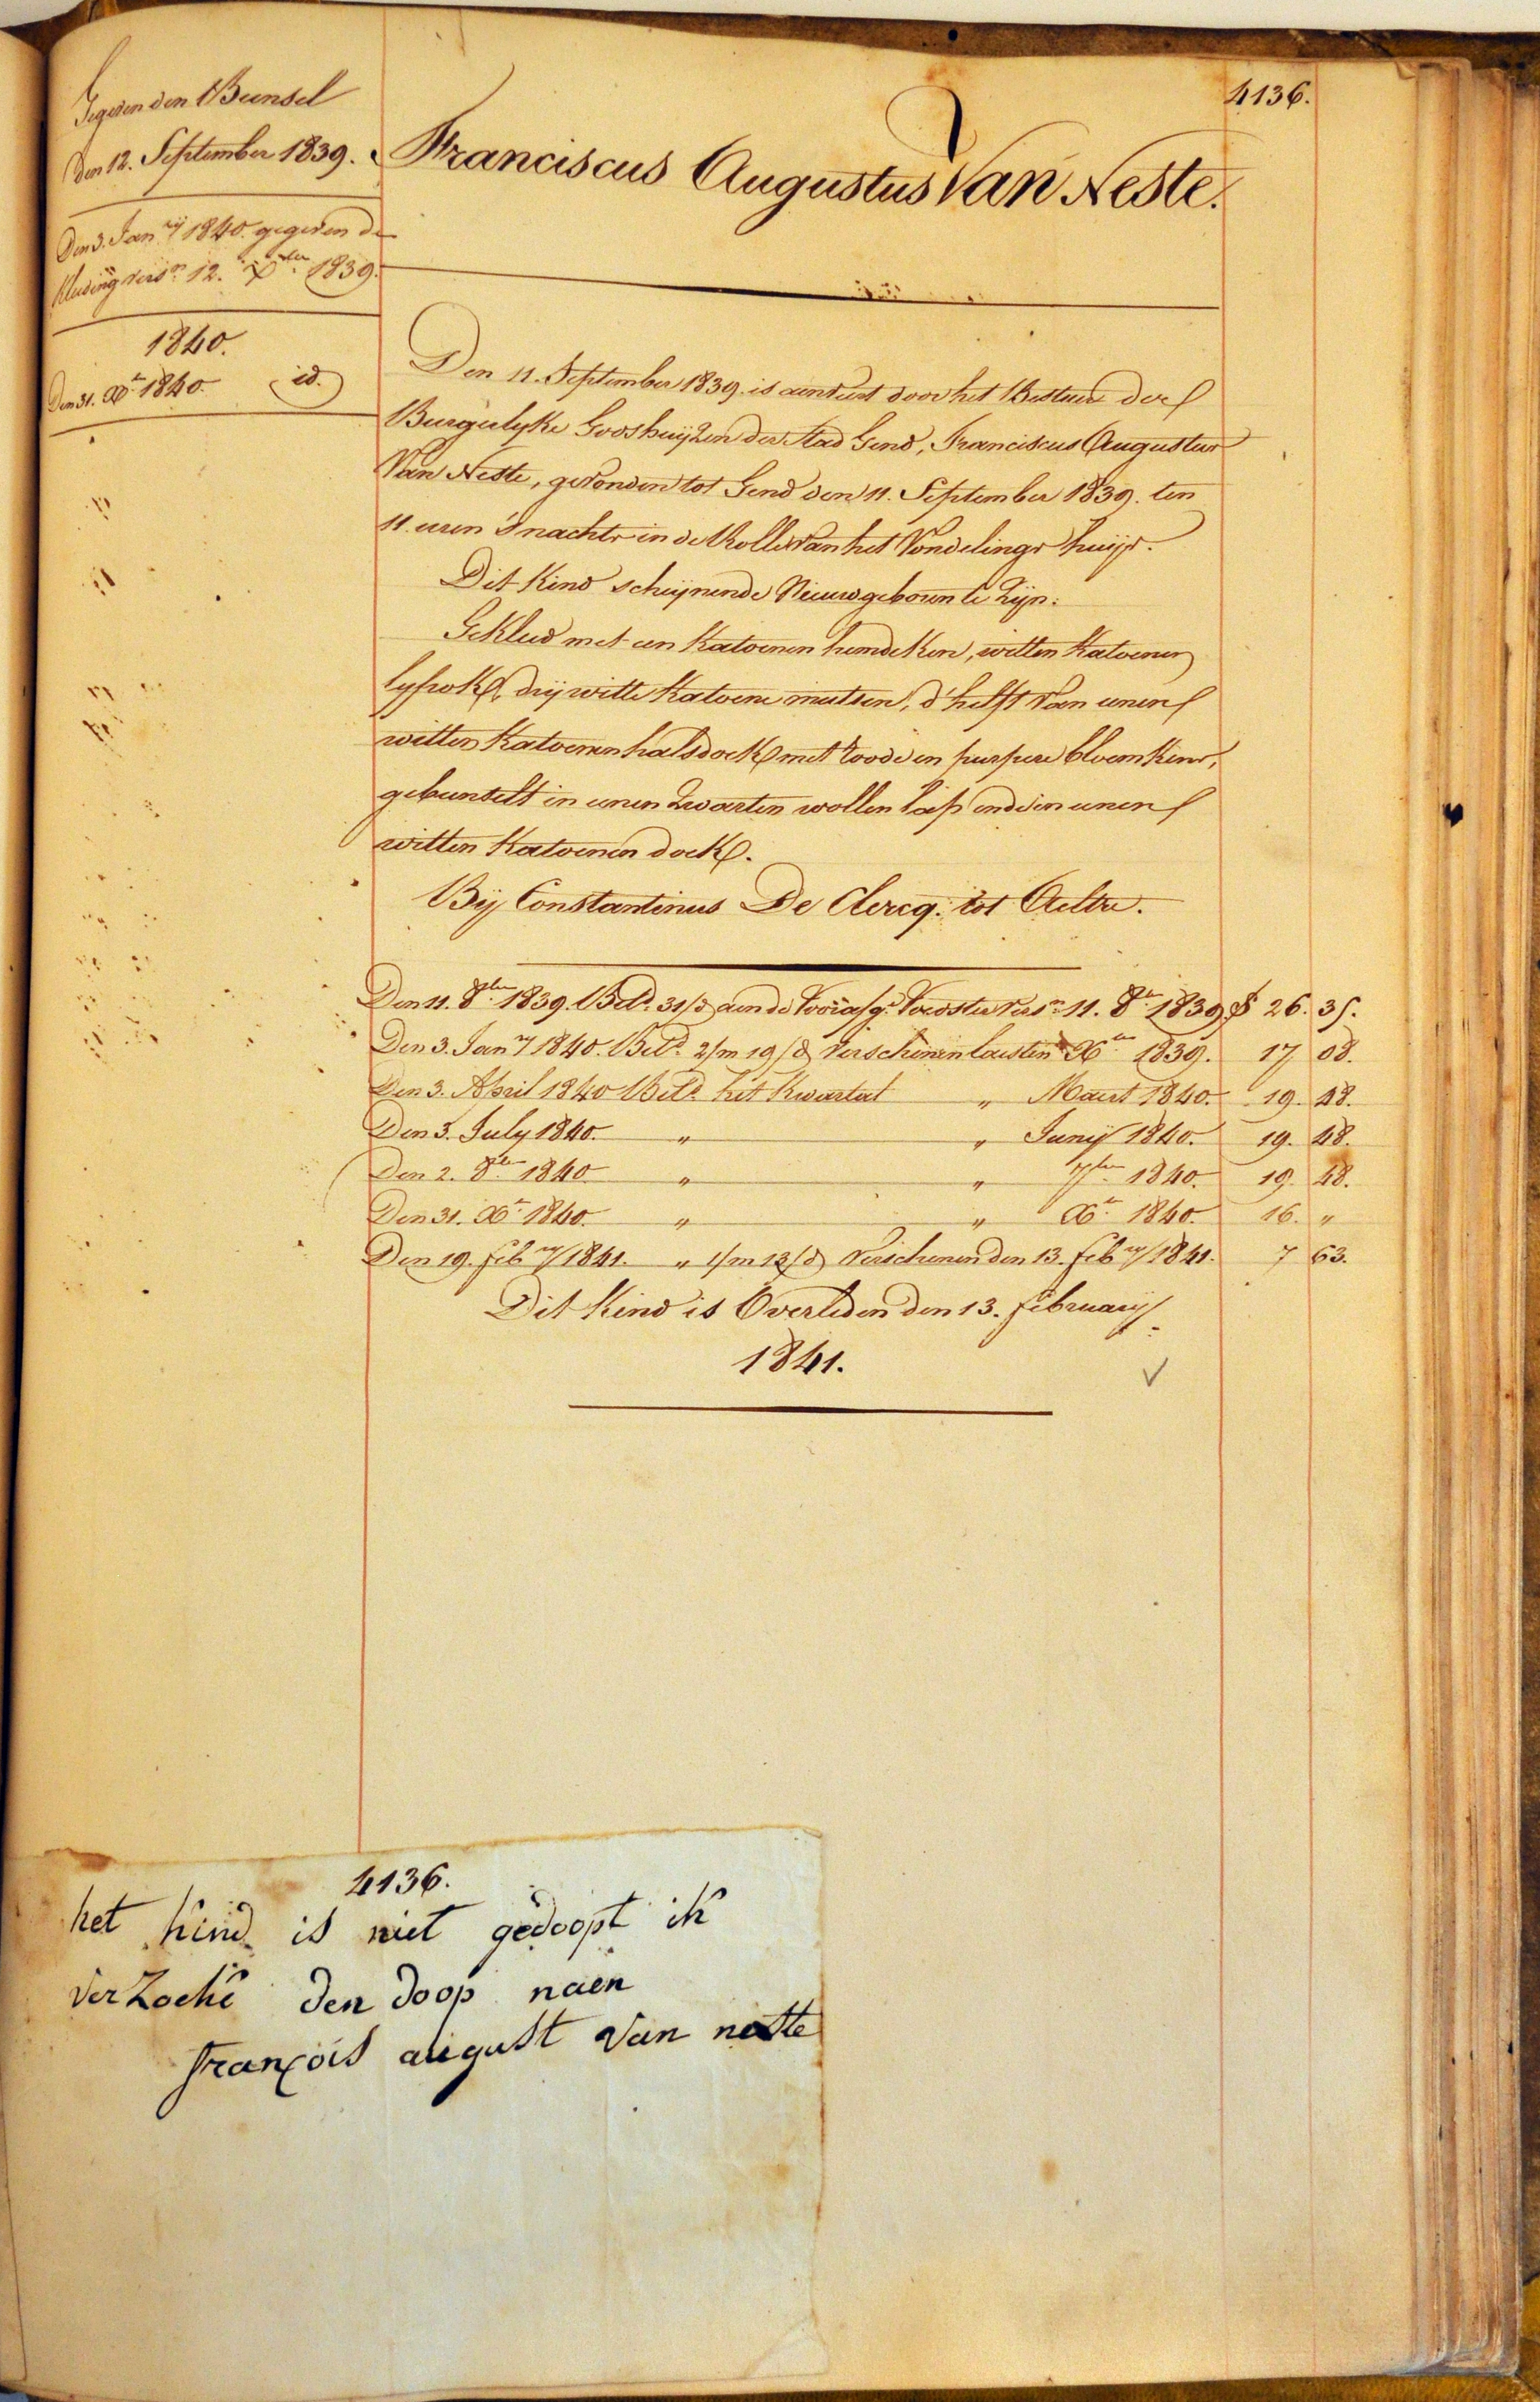 4136.
Gegeven den Bunsel
Den 12. September 1839.
Den 3. Janry 1840. gegeven de
Kleding versn 12. Xber 1839.
1840.
Den 31. Xr 1840. id.
Franciscus Augustus Van Neste.
Den 11. September 1839. is aenveert door het Bestuer der
Burgerlyke Godshuijzen der Stad Gend, Franciscus Augustus
Van Neste, gevonden tot Gend den 11. September 1839. ten
11. uren 's nachts in de Rolle van het Vondelings huijs.
Dit Kind schijnende Nieuwgeboren te Zijn.
Gekleed met een Katoenen hemdeken, witten Katoenen
lyfrok, drij witte Katoene mutsen, d'helft van eenen
witten Katoenen halsdoek met roode en purpere bloemkens,
gebunselt in eenen Zwarten wollen lap ende in eenen
witten Katoenen doek.
Bij Constantinus De Clercq. tot Aeltre.
Den 11. 8ber 1839. Beta 31/d aen de Voedster versn 11. 8r 1839. 26. 35.
Den 3. Janry 1840. Beta 2/m 19/d Verschenen laesten Xber 1839. 17 08.
Den 3. April 1840 Beta het Kwartal " Maert 1840. 19. 48.
Den 3. July 1840. " " Junij 1840. 19. 48.
Den 2. 8ber 1840. " " 7ber 1840. 19. 48.
Den 31. Xr 1840. " " Xr 1840. 16. "
Den 19. Febry 1841. " 1/m 13/d Verschenen den 13. Febry 1841. 7 63.
Dit Kind is Overleden den 13. February
1841.
4136.
het kind is niet gedoopt ik
verzoeke den doop naen
françois august van neste